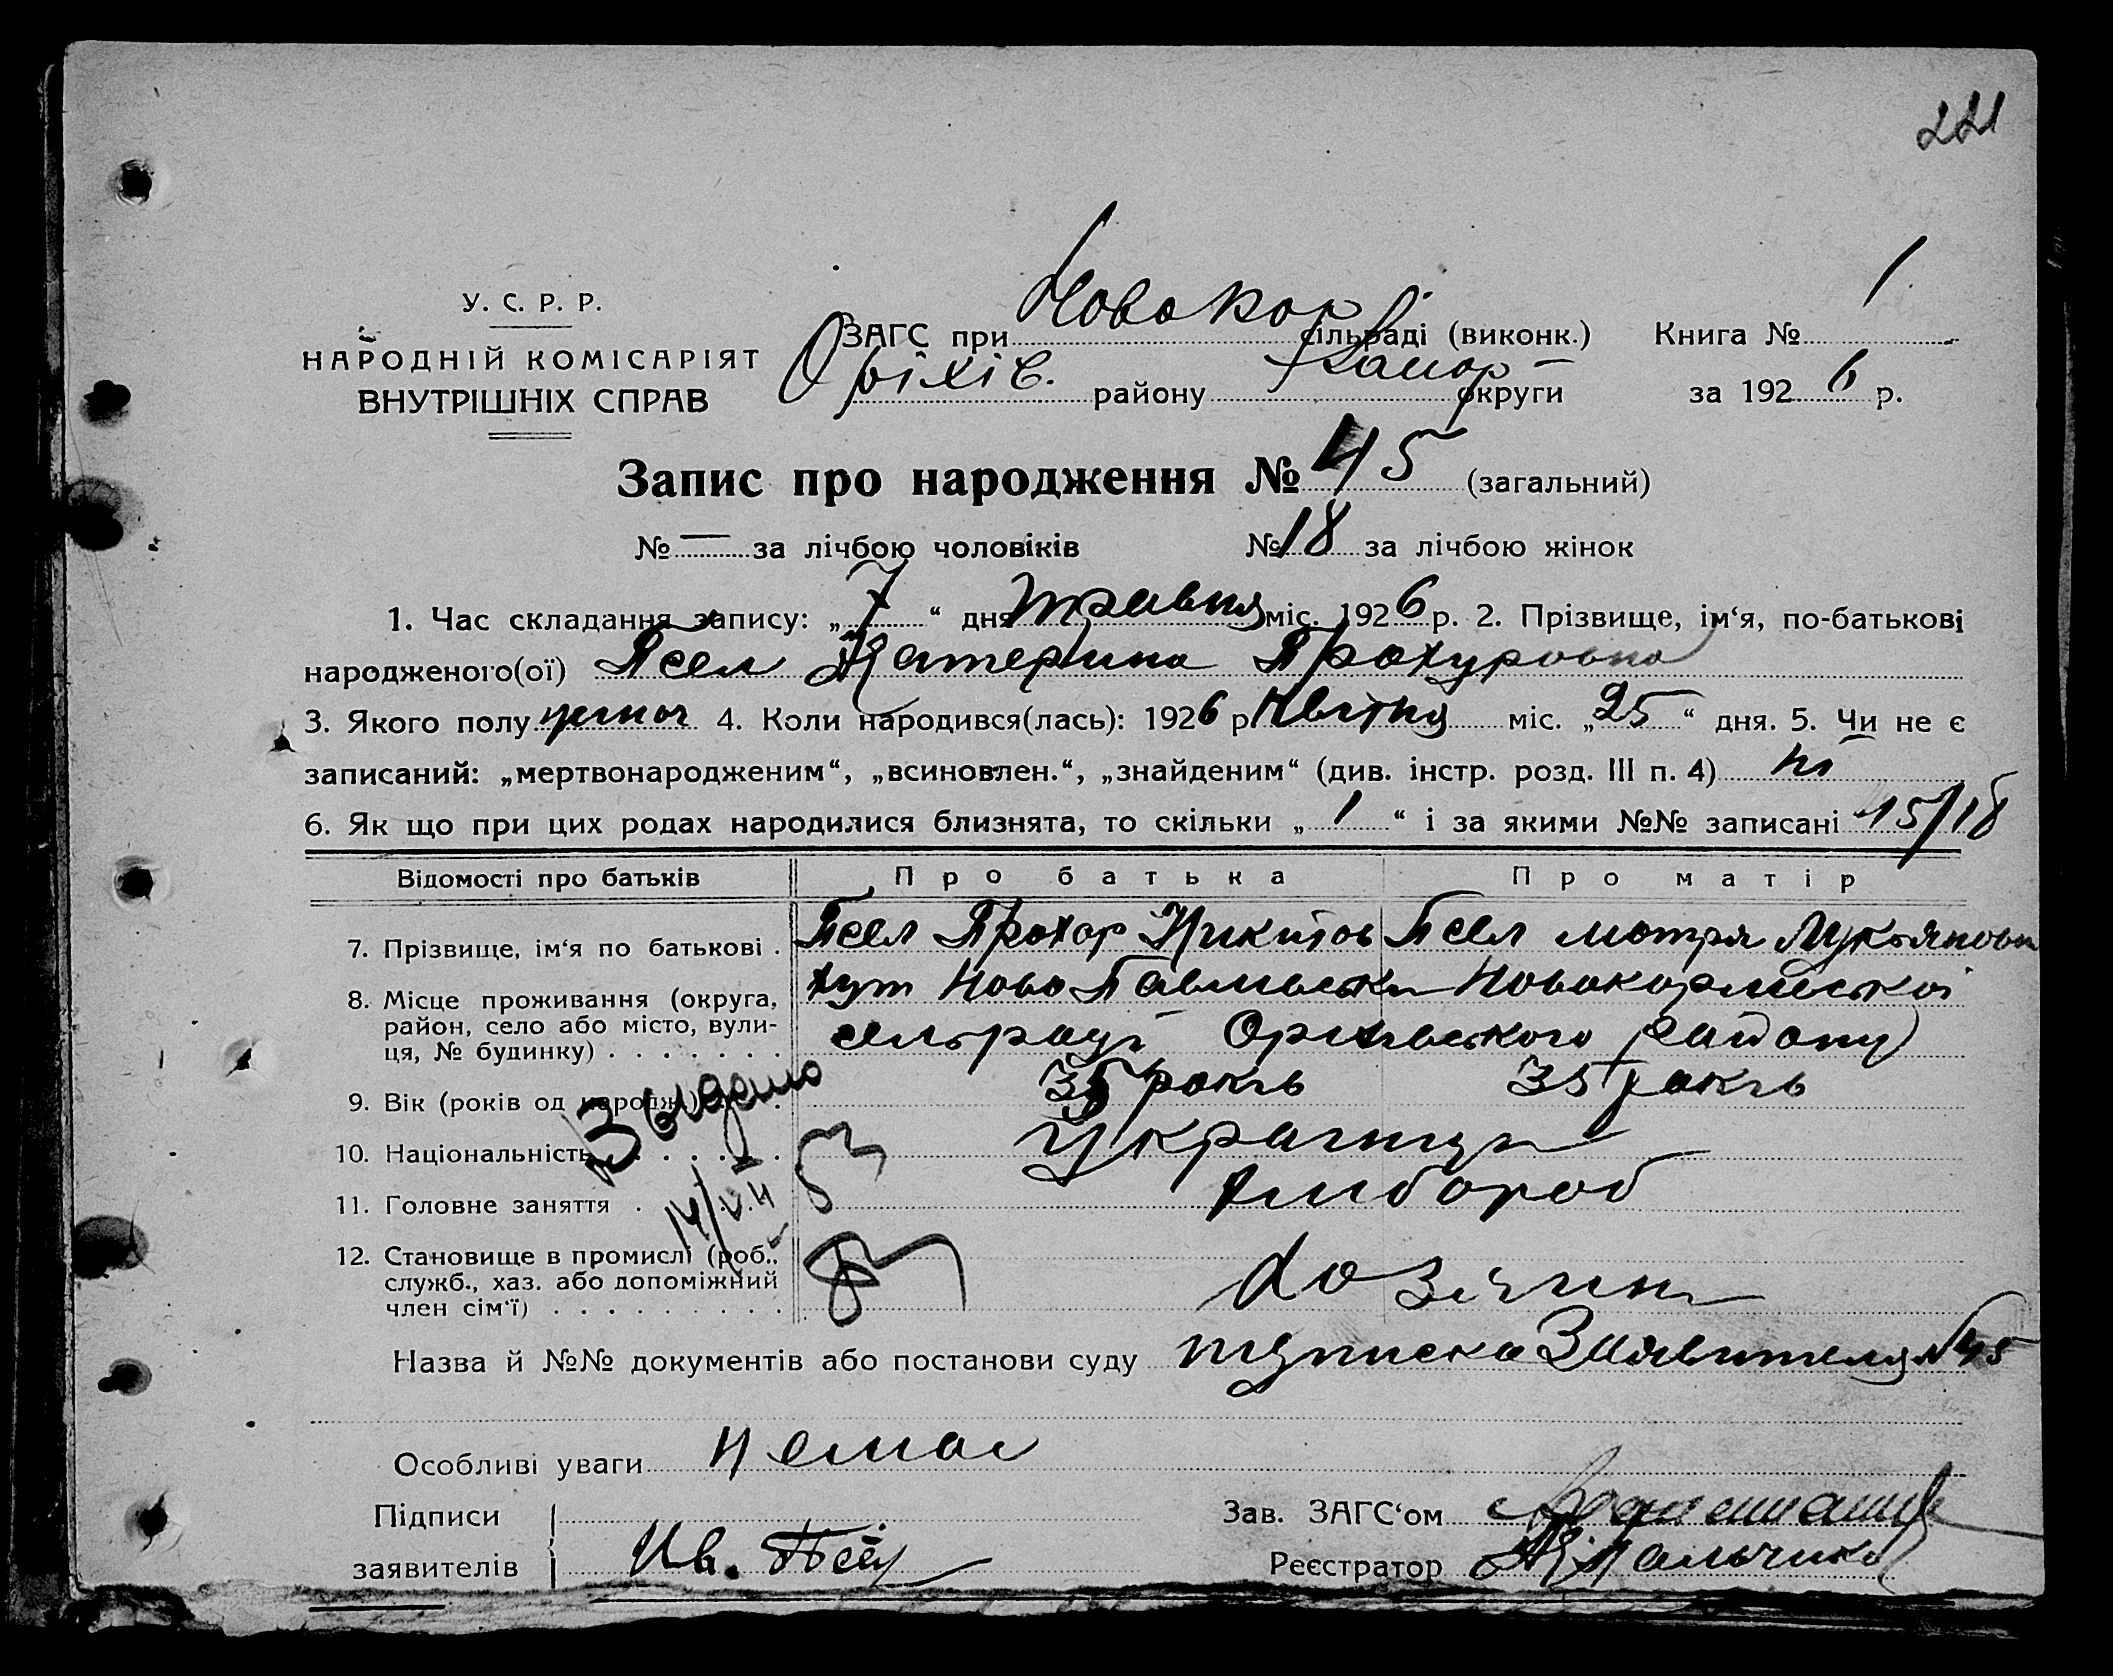 221
У. С. Р. Р.
НАРОДНІЙ КОМІСАРІЯТ
ВНУТРІШНІХ СПРАВ
ЗАГС при Новокор сільраді (виконк.) Книга № 1
Оріхів. району Запор округи за 1926 р.
Запис про народження № 45 (загальний)
№ — за лічбою чоловіків № 18 за лічбою жінок
1. Час складання запису: „7“ дня травня міс. 1926 р. 2. Прізвище, ім‘я, по-батькові
народженого(ої) Псел Катерина Прохуровна
3. Якого полу жіноч 4. Коли народився(лась): 1926 р Квітня міс. „25“ дня. 5. Чи не є
записаний: „мертвонародженим“, „всиновлен.“, „знайденим“ (див. інстр. розд. III п. 4) ні
6. Як що при цих родах народилися близнята, то скільки „1“ і за якими №№ записані 45/18
Відомості про батьків Про батька Про матір
7. Прізвище, ім‘я по батькові . Псел Прохор Никитов Псел мотря Лукьяновн
8. Місце проживання (округа, хут Ново Павлівськи Новокарлиської
район, село або місто, вули- сельради Оріхівського району
ця, № будинку) . . . . . . .
9. Вік (років од народж.) . 35 років 35 років
10. Національність . . . . . . Українци
11. Головне заняття . хлібороб
Видано
14/V.
12. Становище в промислі (роб.,
служб., хаз. або допоміжний хозяин
член сім‘ї) . . . . . . . . .
Назва й №№ документів або постанови суду підписка Заявителя №45
Особливі уваги немає
Підписи Зав. ЗАГС‘ом
заявителів Ив. Псёл Реєстратор Пальчик